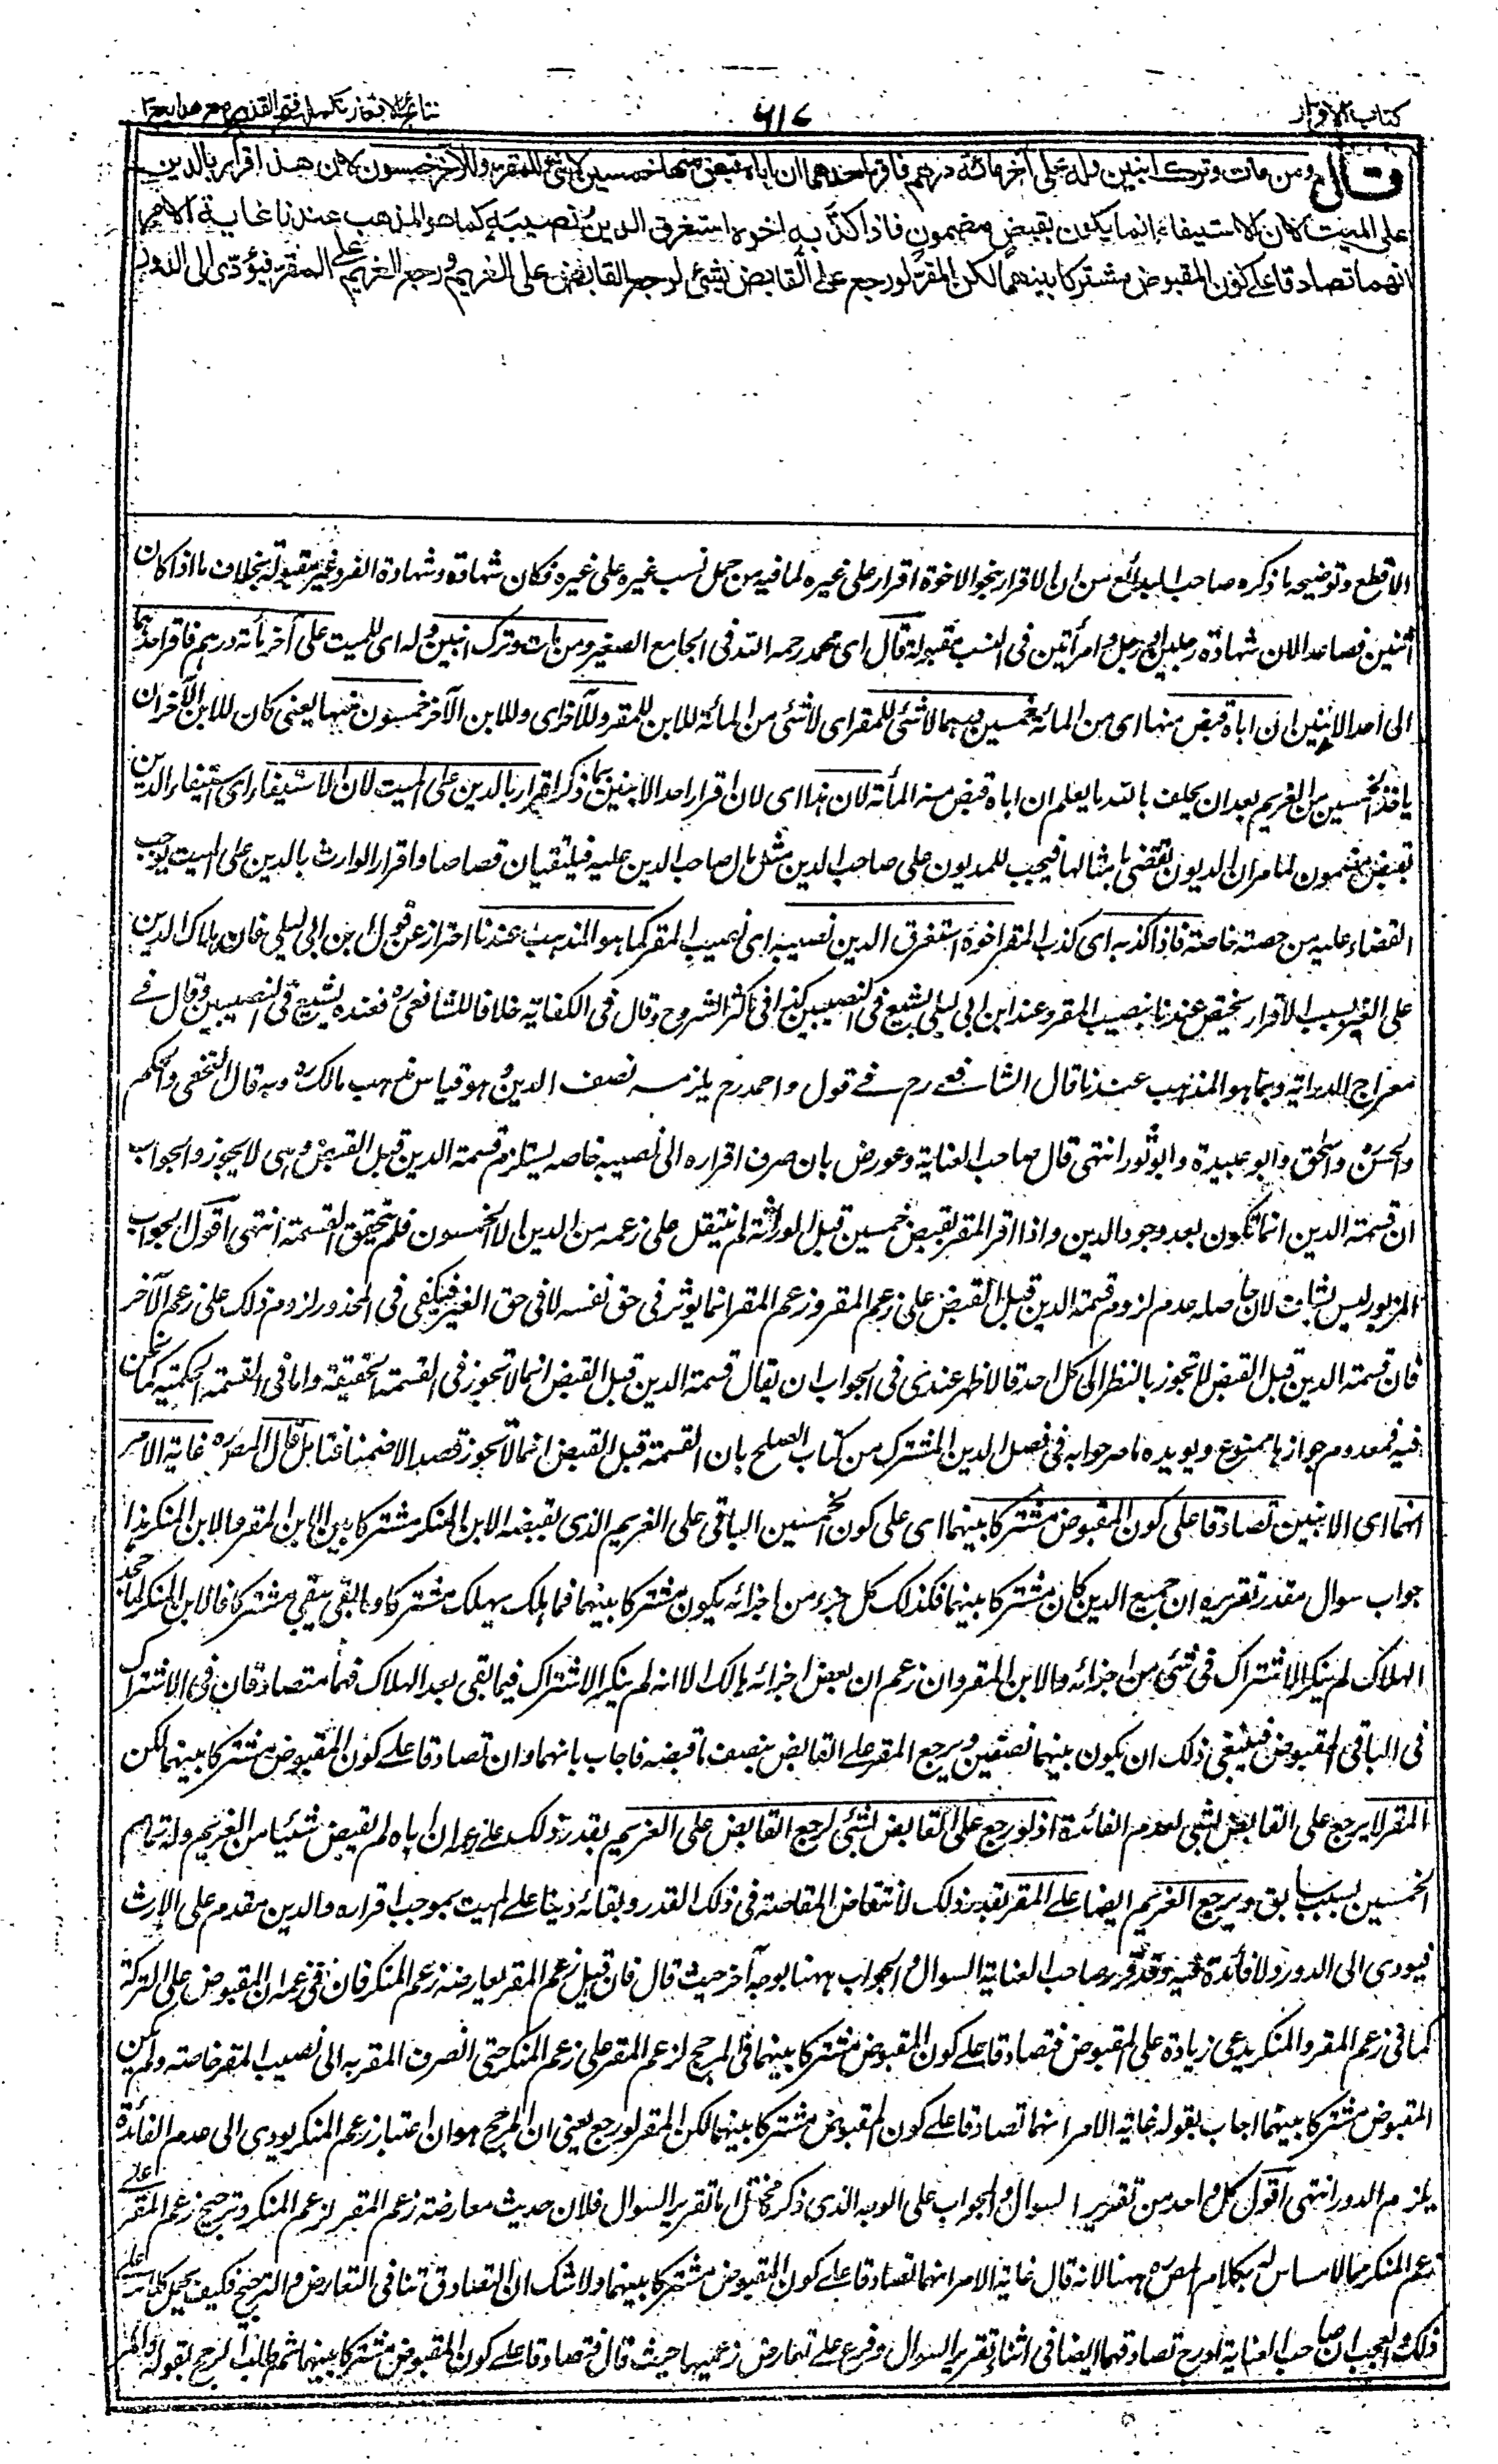 كتاب الاقرار
٦١٧
نتائج الافكار تكملة فتح القدير مع هداية ج٦
قال ومن مات وترك ابنين وله على آخر مائة درهم فاقر احدهما ان اباه قبض منها خمسين لا شئ للمقر وللآخر خمسون لان هذا اقرار بالدين
على الميت لان الاستيفاء انما يكون بقبض مضمون فاذا كذبه اخوه استغرق الدين نصيبه كما هو المذهب عندنا غاية الامر
انهما تصادقا على كون المقبوض مشتركا بينهما لكن المقر لو رجع على القابض بشئ لرجع القابض على الغريم ورجع الغريم على المقر فيؤدى الى الدور
الاقطع وتوضيحه ما ذكره صاحب البدائع من ان الاقرار بنحو الاخوة اقرار على غيره لما فيه من حمل نسب غيره على غيره فكان شهادة وشهادة الفرد غير مقبولة بخلاف ما اذا كان
اثنين فصاعدا لان شهادة رجلين او رجل وامرأتين فى النسب مقبولة قال اى محمد رحمه الله فى الجامع الصغير ومن مات وترك ابنين وله اى للميت على آخر مائة درهم فاقر احدهما
اى احد الابنين ان اباه قبض منها اى من المائة خمسين درهما لا شئ للمقر اى لا شئ من المائة للابن المقر وللآخر اى وللابن الآخر خمسون منها يعنى كان للابن الآخر ان
ياخذ الخمسين من الغريم بعد ان يحلف بالله ما يعلم ان اباه قبض منه المأة لان هذا اى لان اقرار احد الابنين بما ذكر اقرار بالدين على الميت لان الاستيفاء اى استيفاء الدين
بقبض مضمون لما مر ان الديون تقضى بامثالها فيجب للمديون على صاحب الدين مثل ما لصاحب الدين عليه فيلتقيان قصاصا واقرار الوارث بالدين على الميت يوجب
القضاء عليه من حصته خاصة فاذا كذبه اى كذب المقر اخوه استغرق الدين نصيبه اى نصيب المقر كما هو المذهب عندنا احتراز عن قول ابن ابى ليلى فان هلاك الدين
على الغير بسبب الاقرار يختص عندنا بنصيب المقر وعند ابن ابى ليلى يشيع فى النصيبين كذا فى اكثر الشروح وقال فى الكفاية خلافا للشافعى ره فعنده يشيع فى النصيبين وقال فى
معراج الدراية وبما هو المذهب عندنا قال الشافعى رح فى قول واحمد رح يلزمه نصف الدين وهو قياس مذهب مالك ره وبه قال النخعى والحكم
والحسن واسحق وابو عبيدة وابو ثور انتهى قال صاحب العناية وعورض بان صرف اقراره الى نصيبه خاصه يستلزم قسمة الدين قبل القبض وهى لا يجوز والجواب
ان قسمة الدين انما تكون بعد وجود الدين واذا اقر المقر بقبض خمسين قبل الوراثة لم ينتقل على زعمه من الدين الا الخمسون فلم تتحقق القسمة انتهى اقول الجواب
المزبور ليس بشافٍ لان حاصله عدم لزوم قسمة الدين قبل القبض على زعم المقر وزعم المقر انما يوثر فى حق نفسه لا فى حق الغير فيكفى فى المحذور لزوم ذلك على زعم الآخر
فان قسمة الدين قبل القبض لا تجوز بالنظر الى كل احد فالاظهر عندى فى الجواب ان يقال قسمة الدين قبل القبض انما لا تجوز فى القسمة الحقيقة واما فى القسمة الحكمية كما نحن
فيه فعدم جوازها ممنوع ويويده ما مر جوابه فى فصل الدين المشترك من كتاب الصلح بان القسمة قبل القبض انما لا تجوز قصدا لا ضمنا فتامل قال المصره غاية الامر
انهما اى الابنين تصادقا على كون المقبوض مشتركا بينهما اى على كون الخمسين الباقى على الغريم الذى يقبضه الابن المنكر مشتركا بين الابن المقر والابن المنكر هذا
جواب سوال مقدر تقريره ان جميع الدين كان مشتركا بينهما فكذلك كل جزء من اجزائه يكون مشتركا بينهما فما هلك يهلك مشتركا وما بقى يبقى مشتركا فالابن المنكر لما جحد
الهلاك لم ينكر الاشتراك فى شئ من اجزائه والابن المقر وان زعم ان بعض اجزائه هالك الا انه لم ينكر الاشتراك فيما بقى بعد الهلاك فهما متصادقان فى الاشتراك
فى الباقى المقبوض فينبغى ذلك ان يكون بينهما نصفين ويرجع المقر على القابض بنصف ما قبضه فاجاب بانهما وان تصادقا على كون المقبوض مشتركا بينهما لكن
المقر لا يرجع على القابض بشئ لعدم الفائدة اذ لو رجع على القابض بشئ لرجع القابض على الغريم بقدر ذلك على زعمه ان اباه لم يقبض شيئا من الغريم وله تمام
الخمسين بسبب سابق ويرجع الغريم ايضا على المقر بقدر ذلك لانتقاض المقاصة فى ذلك القدر وبقائه دينا على الميت بموجب اقراره والدين مقدم على الارث
فيودى الى الدور ولا فائدة فيه وقد قرر صاحب العناية السوال والجواب ههنا بوجه آخر حيث قال فان قيل زعم المقر يعارضه زعم المنكر فان فى زعمه ان المقبوض على التركة
كما فى زعم المقر والمنكر يدعى زيادة على المقبوض فتصادقا على كون المقبوض مشتركا بينهما فما المرجح لزعم المقر على زعم المنكر حتى انصرف المقر به الى نصيب المقر خاصة ولم يكن
المقبوض مشتركا بينهما اجاب بقوله غاية الامر انهما تصادقا على كون المقبوض مشتركا بينهما لكن المقر لو رجع يعنى ان المرجح هو ان اعتبار زعم المنكر يودى الى عدم الفائدة
يلزم الدور انتهى اقول كل واحد من تقرير السوال والجواب على الوجه الذى ذكر مختل اما تقرير السوال فلان حديث معارضة زعم المقر لزعم المنكر وترجيح زعم المقر على
زعم المنكر مما لا مساس له بكلام المصره ههنا لانه قال غاية الامر انهما تصادقا على كون المقبوض مشتركا بينهما ولا شك ان التصادق تنافى التعارض والترجيح فكيف يحمل كلامه على
ذلك والعجب ان صاحب العناية ادرج تصادقهما ايضا فى اثناء تقرير السوال وفرع على تعارض زعميهما حيث قال فتصادقا على كون المقبوض مشتركا بينهما ثم طلب المرجح بقوله فما المر